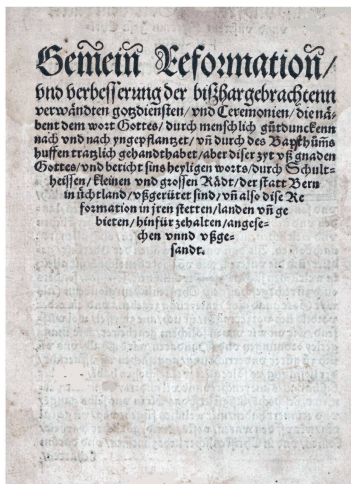 Gemein Reformation/
vnd verbesserung der bißhargebrachtenn
verwändten gotzdiensten/ vnd Ceremonien/ die nä-
bent dem wort Gottes/ durch menschlich gůtdunckenn
nach vnd nach yngepflantzet/ vñ durch des Bapsthůms
huffen tratzlich gehandthabet/ aber diser zyt vß gnaden
Gottes/ vnd bericht sins heyligen worts/ durch Schult-
heissen/ kleinen vnd grossen Rädt/ der statt Bern
in üchtland/ vßgerütet sind/ vñ also dise Re
formation in jren stetten/ landen vñ ge
bieten/ hinfür zehalten/ angese-
chen vnnd vßge-
sandt.